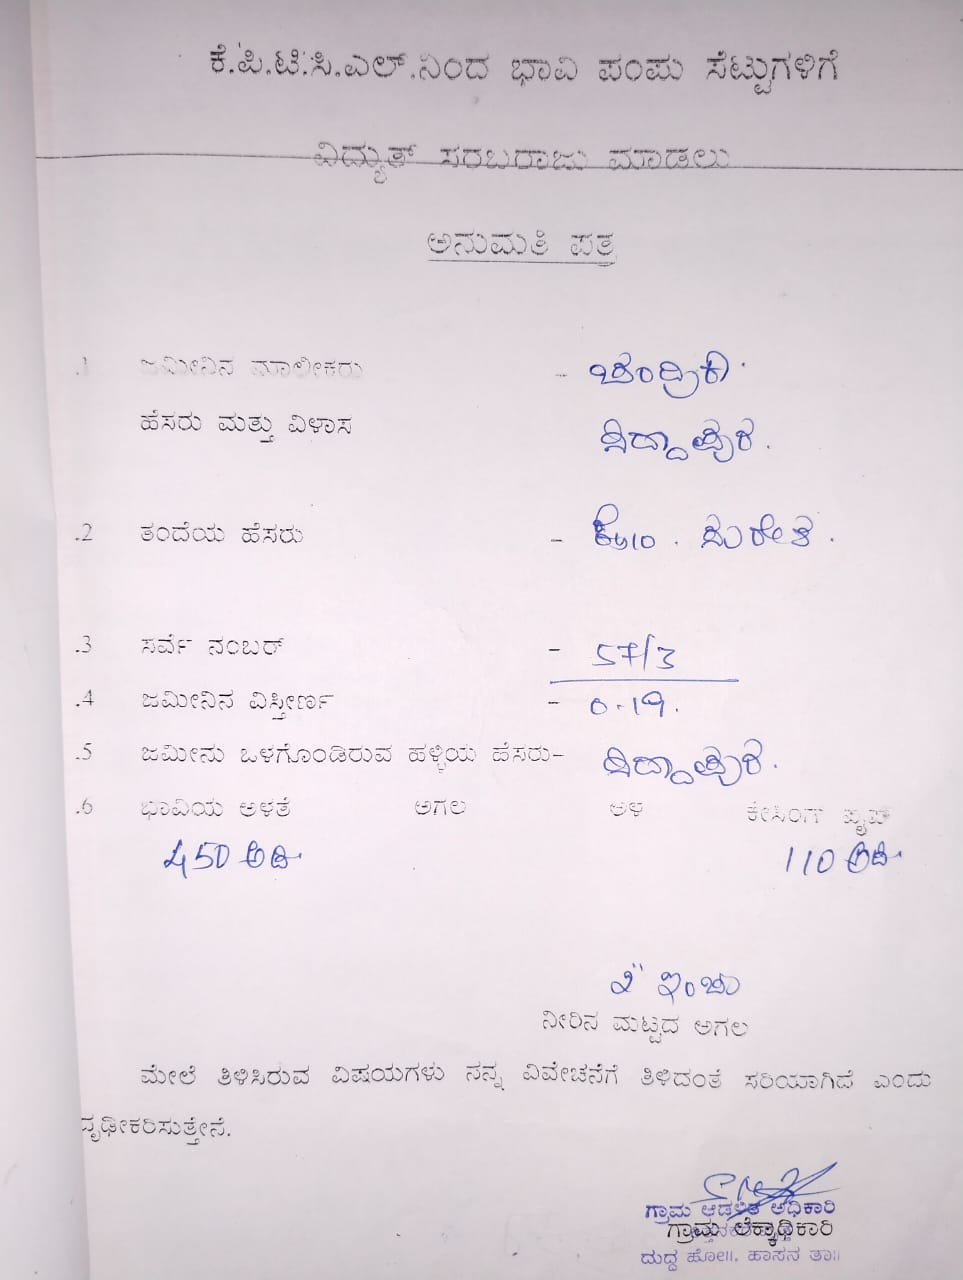 ಕೆ.ಪಿ.ಟಿ.ಸಿ.ಎಲ್.ನಿಂದ ಭಾವಿ ಪಂಪು ಸೆಟ್ಟುಗಳಿಗೆ
ವಿದ್ಯುತ್ ಸರಬರಾಜು ಮಾಡಲು
ಅನುಮತಿ ಪತ್ರ
.1 ಜಮೀನಿನ ಮಾಲೀಕರು - ಚಂದ್ರಿಕಾ
ಹೆಸರು ಮತ್ತು ವಿಳಾಸ ಸಿದ್ದಾಪುರ.
.2 ತಂದೆಯ ಹೆಸರು - ಕೋಂ. ಸುರೇಶ.
.3 ಸರ್ವೆ ನಂಬರ್ - 57/3
.4 ಜಮೀನಿನ ವಿಸ್ತೀರ್ಣ - 0-19.
.5 ಜಮೀನು ಒಳಗೊಂಡಿರುವ ಹಳ್ಳಿಯ ಹೆಸರು- ಸಿದ್ದಾಪುರ.
.6 ಭಾವಿಯ ಅಳತೆ ಅಗಲ ಅಳ ಕೇಸಿಂಗ್ ಪೈಪ್
450 ಅಡಿ. 110 ಅಡಿ.
2" ಇಂಚು
ನೀರಿನ ಮಟ್ಟದ ಅಗಲ
ಮೇಲೆ ತಿಳಿಸಿರುವ ವಿಷಯಗಳು ನನ್ನ ವಿವೇಚನೆಗೆ ತಿಳಿದಂತೆ ಸರಿಯಾಗಿದೆ ಎಂದು
ದೃಢೀಕರಿಸುತ್ತೇನೆ.
ಗ್ರಾಮ ಆಡಳಿತ ಅಧಿಕಾರಿ
ಗ್ರಾಮ ಲೆಕ್ಕಾಧಿಕಾರಿ
ದುದ್ದ ಹೋ॥. ಹಾಸನ ತಾ॥